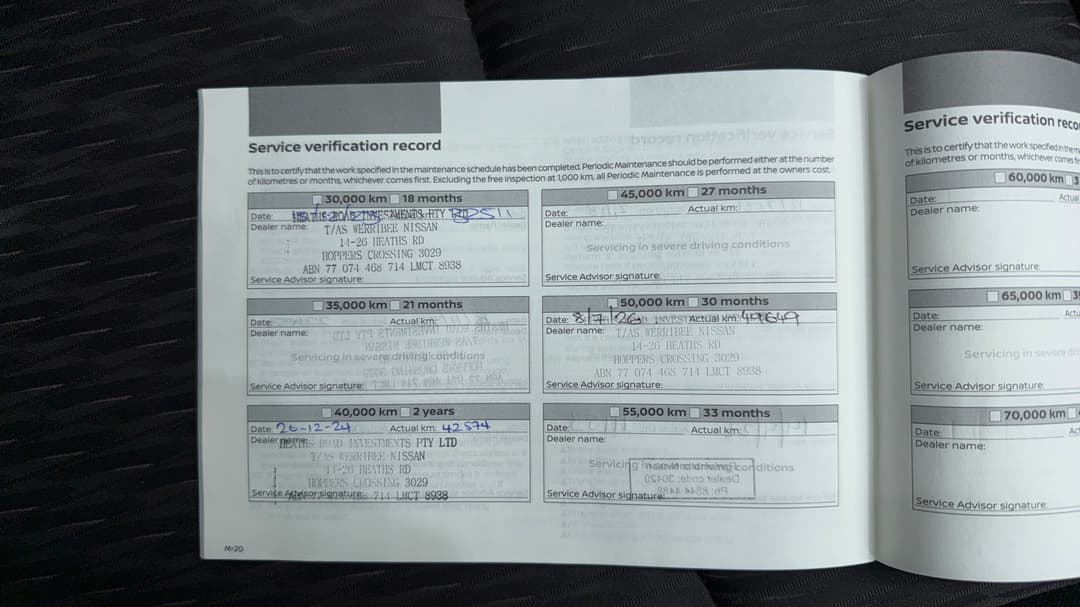 Service verification record
This is to certify that the work specified in the maintenance schedule has been completed. Periodic Maintenance should be performed either at the number
of kilometres or months, whichever comes first. Excluding the free inspection at 1,000 km, all Periodic Maintenance is performed at the owners cost.
30,000 km 18 months
Date:
Dealer name: T/AS WERRIBEE NISSAN
14-26 HEATHS RD
HOPPERS CROSSING 3029
ABN 77 074 468 714 LMCT 8938
Service Advisor signature:
35,000 km 21 months
Date: Actual km:
Dealer name:
Servicing in severe driving conditions
Service Advisor signature:
40,000 km 2 years
Date: 26-12-24 Actual km: 42574
Dealer name: HEATHS ROAD INVESTMENTS PTY LTD
T/AS WERRIBEE NISSAN
HEATHS RD
HOPPERS CROSSING 3029
Service Advisor signature: 714 LMCT 8938
M-20
45,000 km 27 months
Date: Actual km:
Dealer name:
Servicing in severe driving conditions
Service Advisor signature:
50,000 km 30 months
Date: 8/7/26 Actual km: 49649
Dealer name: T/AS WERRIBEE NISSAN
14-26 HEATHS RD
HOPPERS CROSSING 3029
ABN 77 074 468 714 LMCT 8938
Service Advisor signature:
55,000 km 33 months
Date: Actual km:
Dealer name:
Servicing in severe driving conditions
Service Advisor signature:
Service verification
This is to certify that the work specified in the
of kilometres or months, whichever comes
60,000 km
Date: Actual
Dealer name:
Service Advisor signature:
65,000 km
Date:
Dealer name:
Servicing in severe
Service Advisor signature:
70,000 km
Date:
Dealer name:
Service Advisor signature: